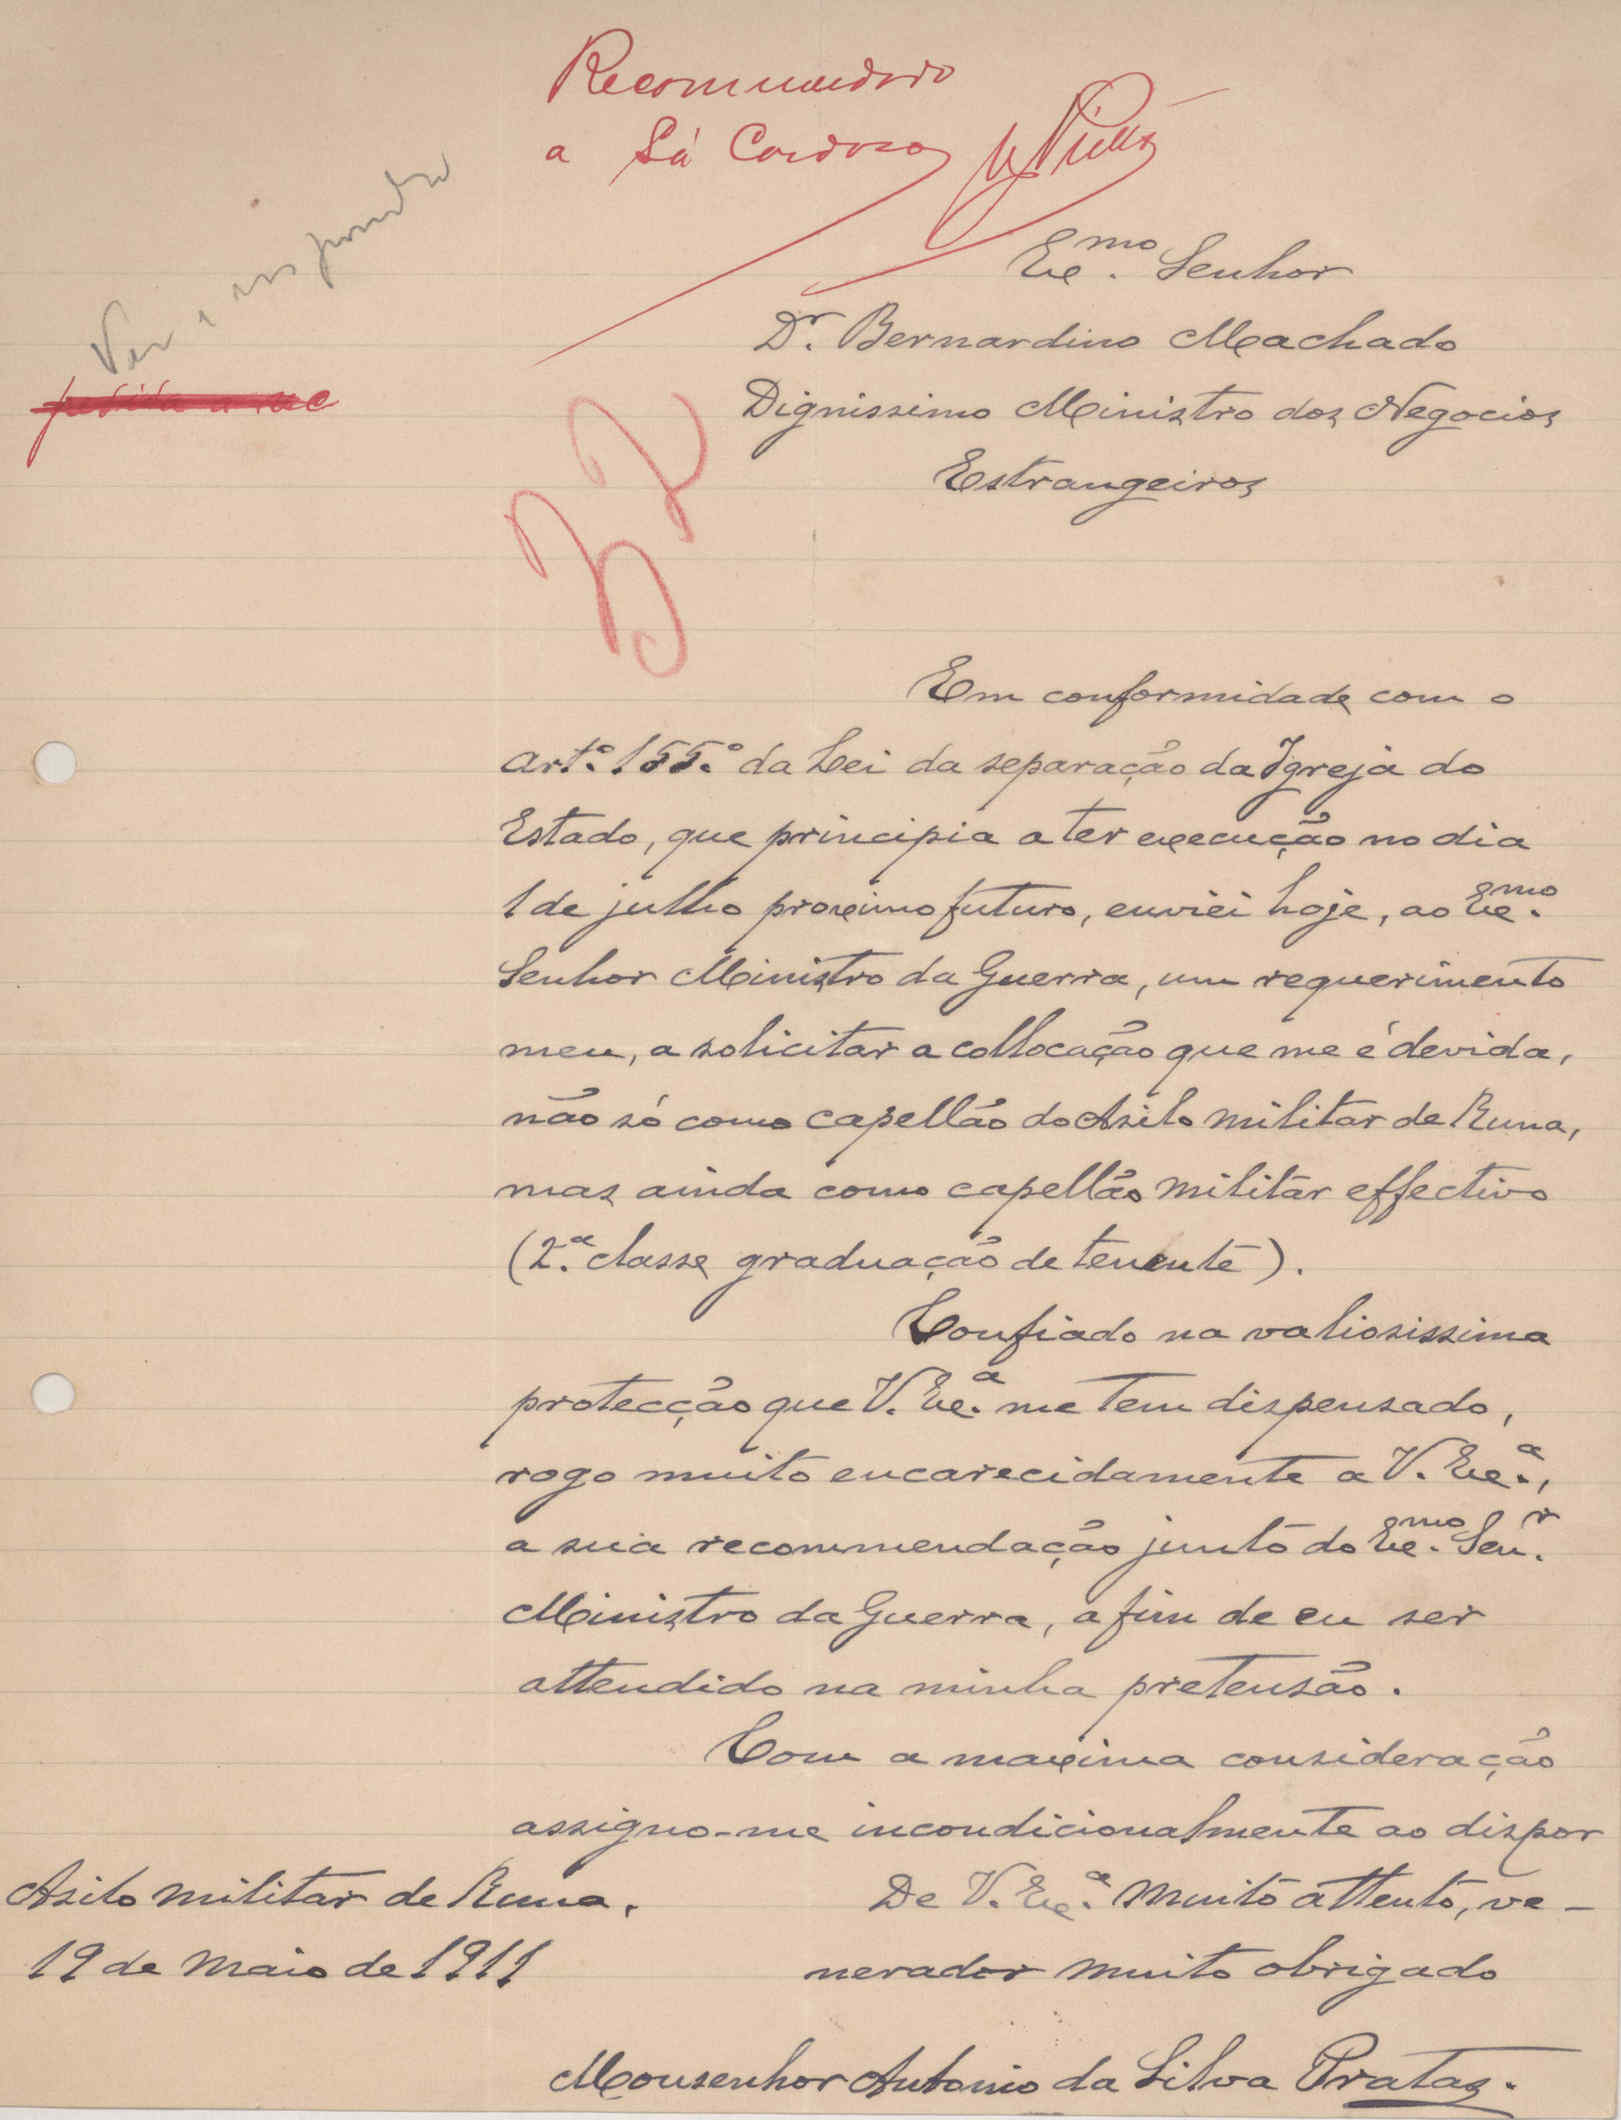 Recommendado
a Sá Cardoso
Ver e responder
Exmo. Senhor
Dr. Bernardino Machado
Dignissimo Ministro dos Negocios
Estrangeiros
32
Em conformidade com o
art.º 155.º da Lei da separação da Igreja do
Estado, que principia a ter execução no dia
1 de julho proximo futuro, enviei hoje, ao Exmo.
Senhor Ministro da Guerra, um requerimento
meu, a solicitar a collocação que me é devida,
não só como capellão do Asilo militar de Runa,
mas ainda como capellão militar effectivo
(2.ª classe graduação de tenente).
Confiado na valiosissima
protecção que V. Ex.ª me tem dispensado,
rogo muito encarecidamente a V. Ex.ª,
a sua recommendação junto do Exmo. Senr.
Ministro da Guerra, a fim de eu ser
attendido na minha pretensão.
Com a maxima consideração
assigno-me incondicionalmente ao dispor
De V. Ex.ª muito attento, ve-
nerador muito obrigado
Asilo militar de Runa,
19 de Maio de 1911
Monsenhor Antonio da Silva Pratas.